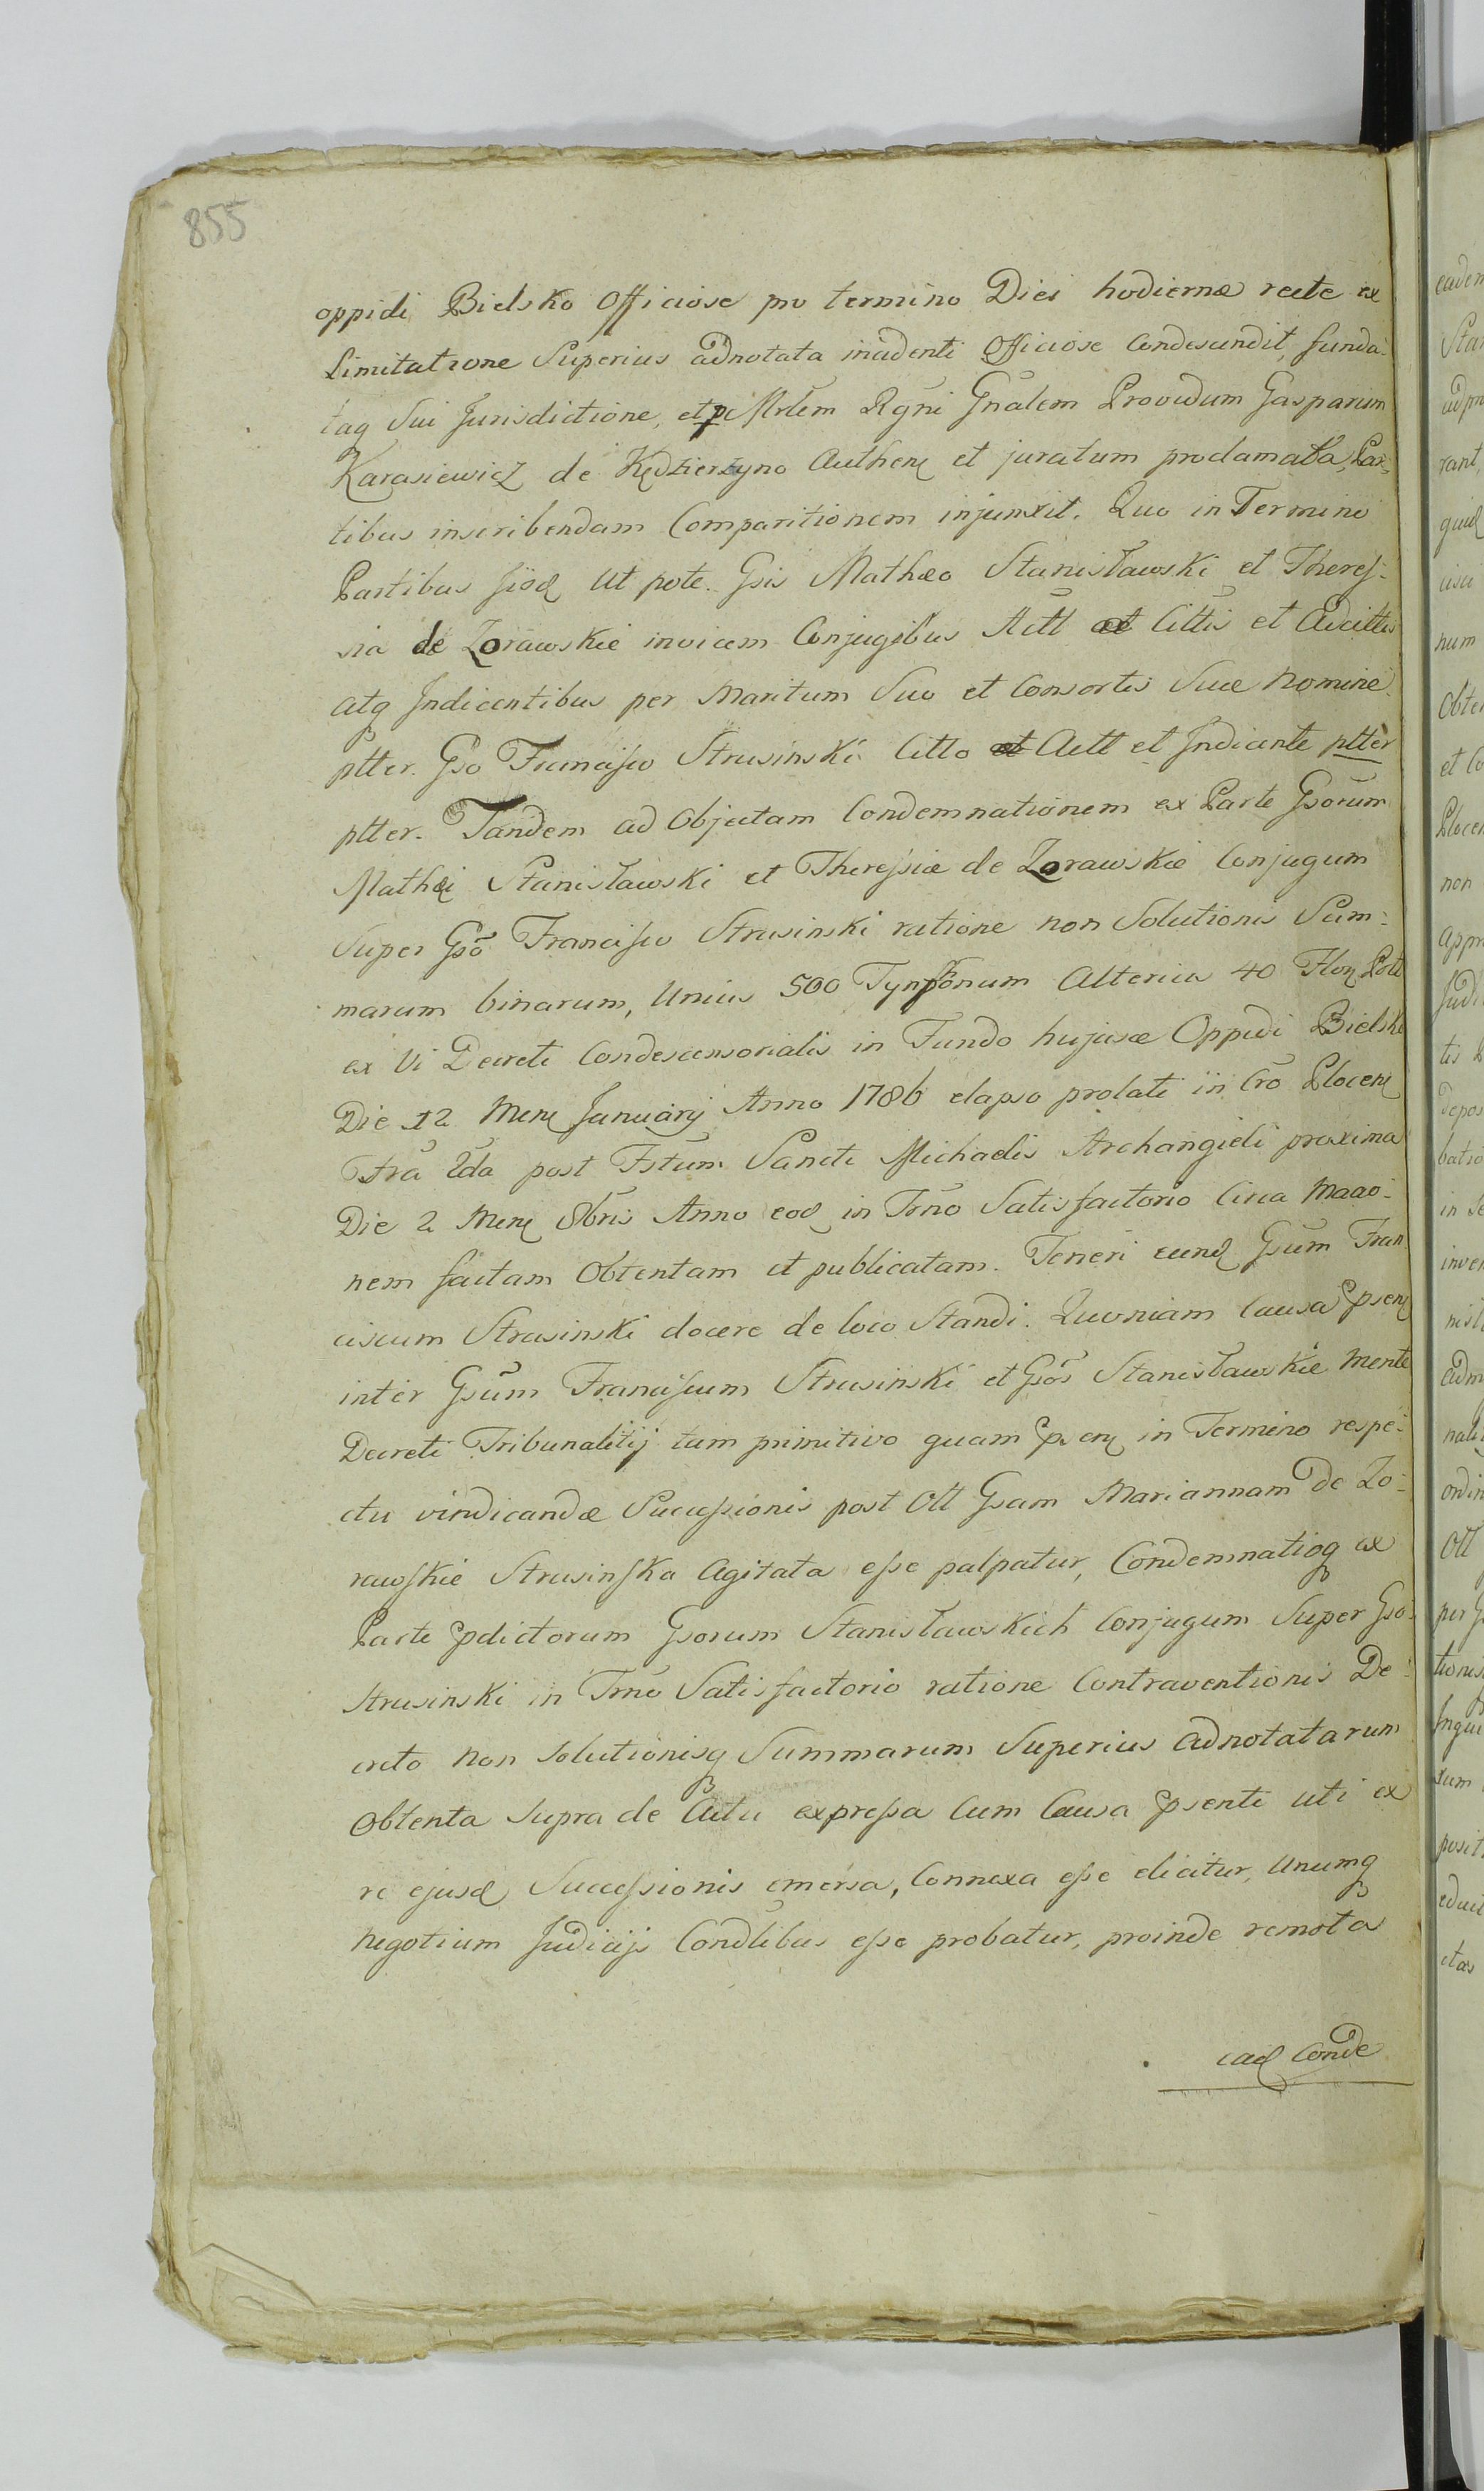 855
oppidi Bielsko Officiose pro termino Diei hodiernæ recte ex
Limitatione Superius adnotata incidenti Officiose Condescendit, funda-
taq Sui Jurisdictione, et p Mrlem Rgni Gnalem Providum Gasparum
Karasiewicz de Kędzierzyno Authen et juratum proclamata, Par-
tibus inscribendam Comparitionem injunxit. Quo in Termino
Partibus ijsd Ut pote. Gsis Mathæo Stanisławski et Theres-
sia de Zorawskie invicem Conjugibus Actt et Cittis et Adcittis
atq Indicentibus per Maritum Suo et Consortis Suæ Nomine
ptter. Gso Francisco Strusinski Citto et Actt et Indicente ptter
ptter. Tandem ad Objectam Condemnationem ex Parte Gsorum
Mathæi Stanisławski et Theressiæ de Zorawskie Conjugum
Super Gso Francisco Strusinski ratione non Solutionis Sum-
marum binarum, Unius 500 Tynfonum Alterius 40 Flor Poll
ex Vi Decreti Condescensorialis in Fundo hujusce Oppidi Bielsko
Die 12 Men Januarij Anno 1786 elapso prolati in Cro Plocen
Fra 2da post Fstum Sancti Michaelis Archangieli proxima
Die 2 Men 8bris Anno eod in Trno Satisfactorio Circa Maao-
nem factam Obtentam et publicatam. Teneri eund Gsum Fran
ciscum Strusinski docere de loco Standi. Quoniam Causa psens
inter Gsum Franciscum Strusinski et Gsos Stanisławskie Mente
Decreti Tribunalitij tam primitivo quam psens in Termino respe-
ctu vindicandæ Successionis post Olt Gsam Mariannam De Zo-
rawskie Strusinska Agitata esse palpatur, Condemnatioq ex
Parte pdictorum Gsorum Stanisławskich Conjugum Super Gso
Strusinski in Trno Satisfactorio ratione Contraventionis De-
creto non Solutionisq Summarum Superius adnotatarum
Obtenta Supra de Actu expressa Cum Causa psenti uti ex
re ejusd Successionis emersa, Connexa esse elicitur, Unumq
negotium Judicijs Condlibus esse probatur, proinde remota
ead Conde